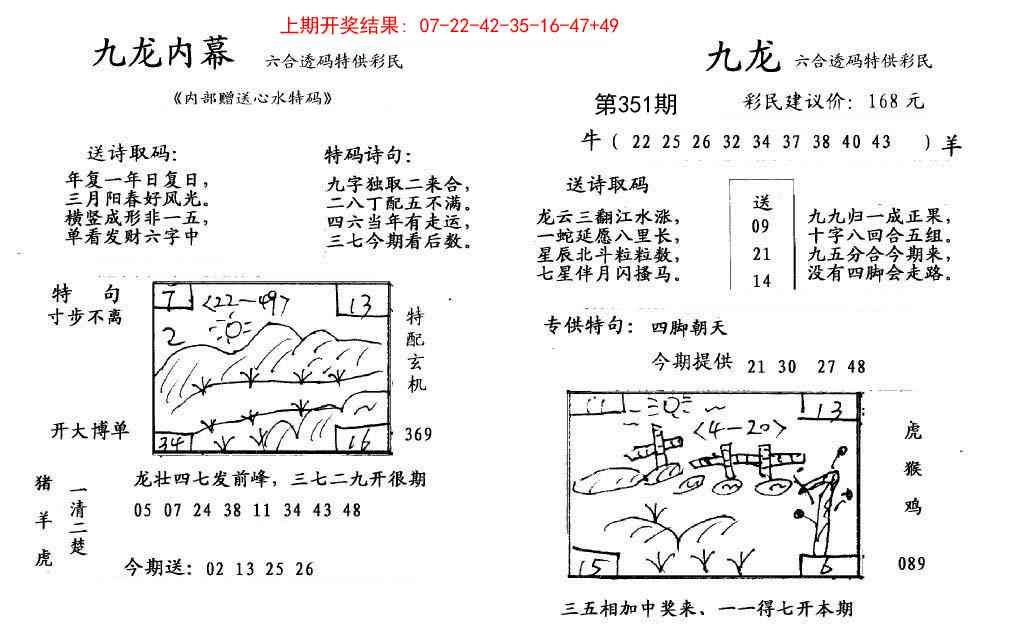 上期开奖结果：07-22-42-35-16-47+49
九龙内幕 六合透码特供彩民
《内部赠送心水特码》
送诗取码：
年复一年日复日，
三月阳春好风光。
横竖成形非一五，
单看发财六字中
特码诗句：
九字独取二来合，
二八丁配五不满。
四六当年有走运，
三七今期看后数。
特 句
寸步不离
开大博单
7 <22-49> 13
2
34 16
特配玄机
369
猪羊虎
一清二楚
龙壮四七发前峰，三七二九开很期
05 07 24 38 11 34 43 48
今期送：02 13 25 26
九龙 六合透码特供彩民
第351期 彩民建议价：168元
牛（ 22 25 26 32 34 37 38 40 43 ）羊
送诗取码
龙云三翻江水涨，
一蛇延愿八里长，
星辰北斗粒粒数，
七星伴月闪搔马。
送
09
21
14
九九归一成正果，
十字八回合五组。
九五分合今期来，
没有四脚会走路。
专供特句：四脚朝天
今期提供 21 30 27 48
11 13
<4-20>
15 6
虎
猴
鸡
089
三五相加中奖来、一一得七开本期